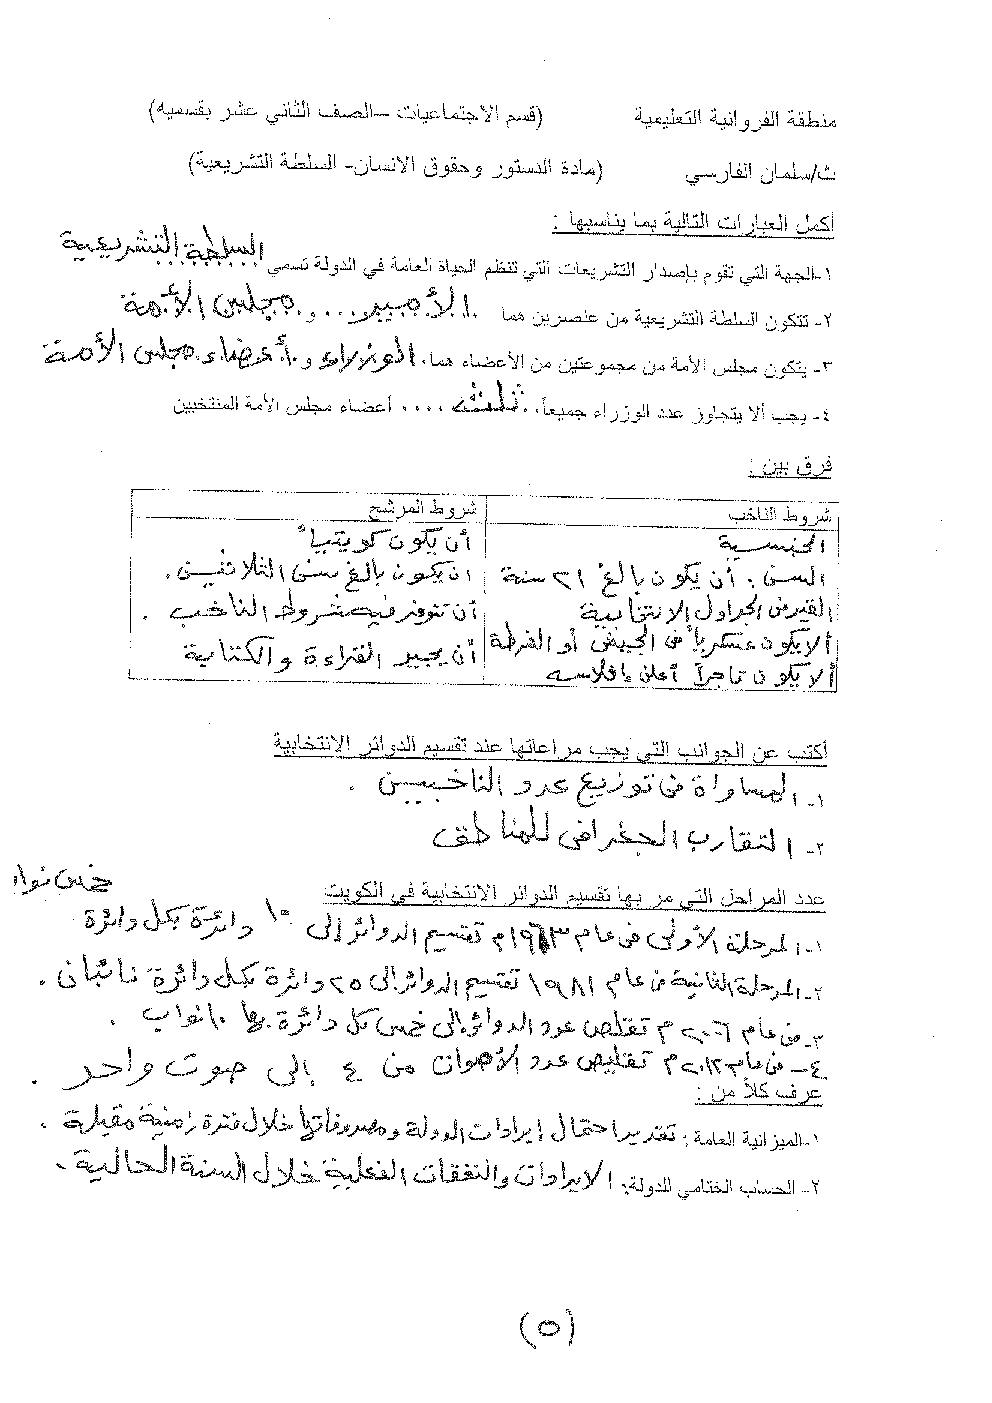 منطقة الفروانية التعليمية (قسم الاجتماعيات –الصف الثاني عشر بقسميه)
ث/سلمان الفارسي (مادة الدستور وحقوق الانسان- السلطة التشريعية)
أكمل العبارات التالية بما يناسبها :
١-الجهة التي تقوم بإصدار التشريعات التي تنظم الحياة العامة في الدولة تسمى السلطة التشريعية
٢- تتكون السلطة التشريعية من عنصرين هما الأمير... و مجلس الأمة
٣- يتكون مجلس الأمة من مجموعتين من الأعضاء هما. الوزراء و أعضاء مجلس الأمة
٤- يجب ألا يتجاوز عدد الوزراء جميعاً. ثلث .... أعضاء مجلس الأمة المنتخبين
فرق بين :
شروط الناخب شروط المرشح
الجنسية أن يكون كويتياً
السن : أن يكون بالغ ٢١ سنة ان يكون بالغ سن الثلاثين .
القيد في الجداول الانتخابية أن تتوفر فيه شروط الناخب .
ألا يكون عسكرياً في الجيش أو الشرطة أن يجيد القراءة والكتابة
ألا يكون تاجراً أعلن إفلاسه
أكتب عن الجوانب التي يجب مراعاتها عند تقسيم الدوائر الانتخابية
١- المساواة في توزيع عدد الناخبين .
٢- التقارب الجغرافي للمناطق
عدد المراحل التي مر بها تقسيم الدوائر الانتخابية في الكويت
١- المرحلة الأولى في عام ١٩٦٣م تقسيم الدوائر إلى ١٠ دائرة بكل دائرة خمس نواب
٢- المرحلة الثانية في عام ١٩٨١ تقسيم الدوائر إلى ٢٥ دائرة بكل دائرة نائبان .
٣- في عام ٢٠٠٦ م تقلص عدد الدوائر إلى خمس كل دائرة بها ١٠ نواب .
٤- في عام ٢٠١٢م تقليص عدد الأصوات من ٤ إلى صوت واحد .
عرف كلاً من :
١-الميزانية العامة : تقدير احتمال إيرادات الدولة ومصروفاتها خلال فترة زمنية مقبلة .
٢- الحساب الختامي للدولة: الايرادات والنفقات الفعلية خلال السنة الحالية .
(٥)